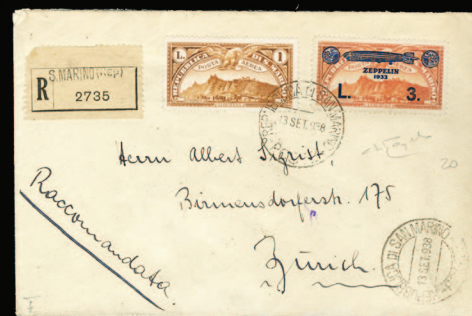 S. MARINO (Rep.)
R 2735
L. 1
POSTA AEREA
ZEPPELIN
1933
L. 3.
13 SET. 938
Herrn Albert Sigrist,
Birmensdorferstr. 175
Zürich.
Raccomandata
REPUBBLICA DI SAN MARINO
13 SET. 938
20